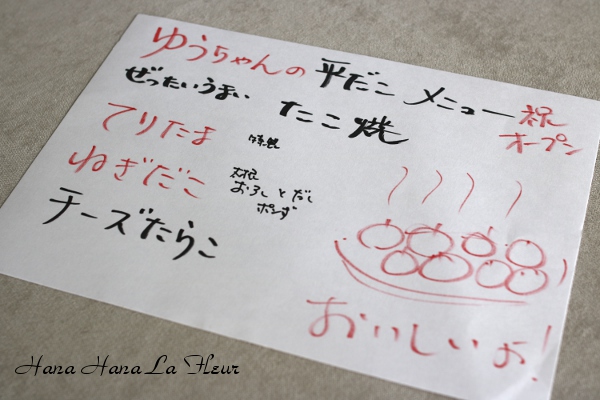 ゆうちゃんの 平だこ メニュー 祝
オープン
ぜったいうまい たこ焼
てりたま
ねぎだこ 大根
おろしとだし
ポンず
チーズたらこ
おいしいよ!
Hana Hana La Fleur